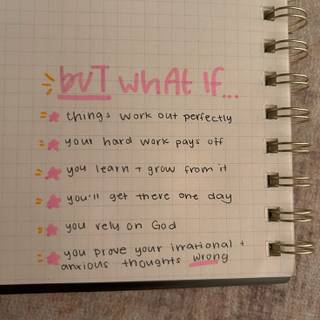 but what if...
things work out perfectly
your hard work pays off
you learn + grow from it
you'll get there one day
you rely on God
you prove your irrational +
anxious thoughts wrong